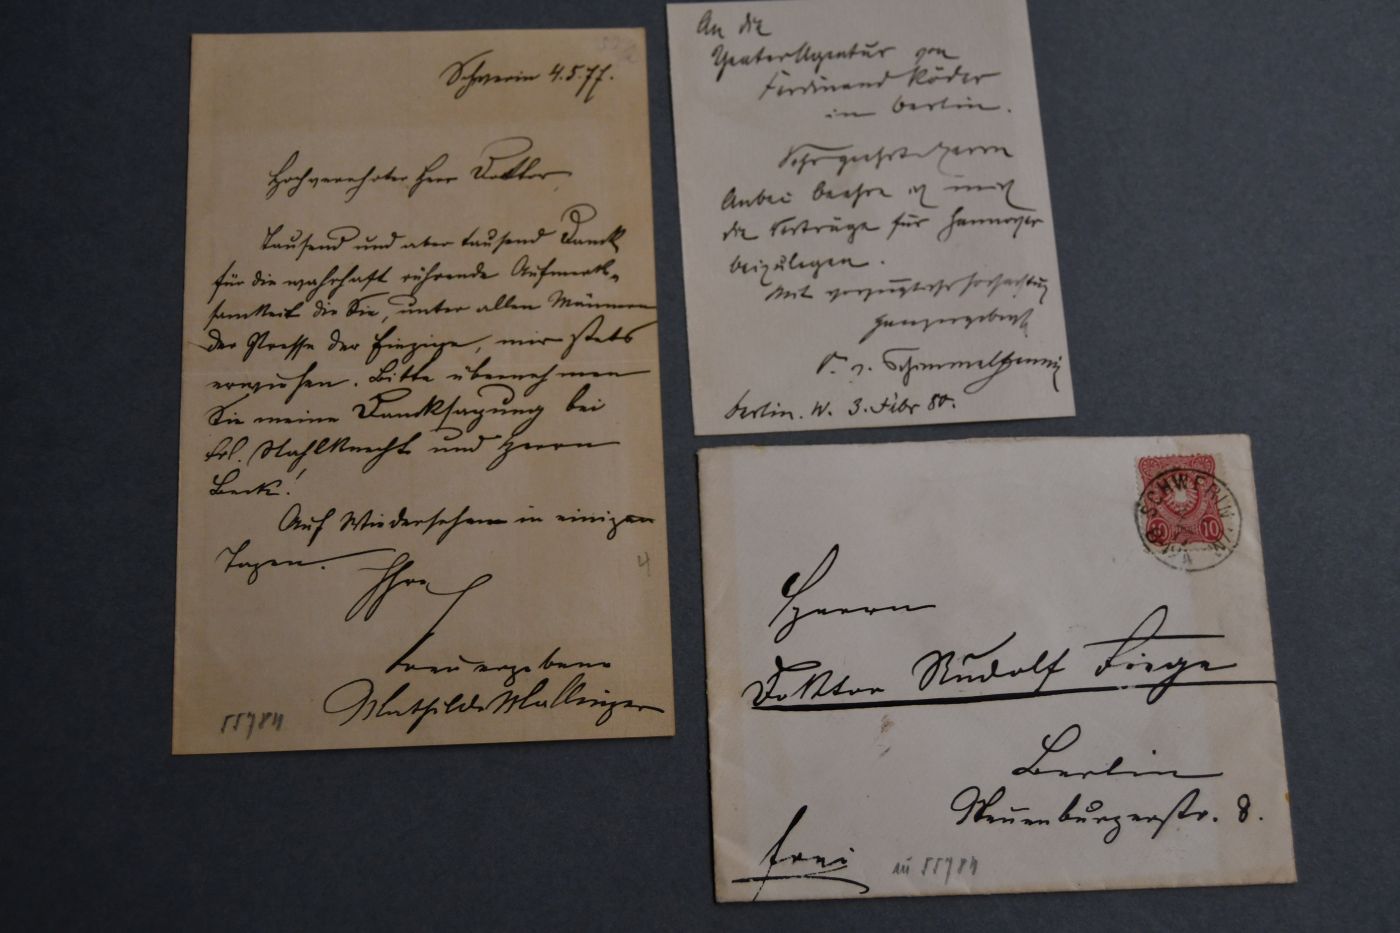 Schwerin 4.5.77.
Hochverehrter Herr Doktor
Tausend und aber tausend Danck
für die wahrhaft rührende Aufmerk-
samkeit die Sie, unter allen Männern
der Presse der Einzige, mir stets
erweisen. Bitte übernehmen
Sie meine Dancksagung bei
Frl. Stahlknecht und Herrn
Beck!
Auf Wiedersehen in einigen
Tagen.
Ihre
treu ergebene
Mathilde Mallinger
55784
4
An die
TheaterAgentur von
Ferdinand Röder
in Berlin.
Sehr geehrte Herrn
Anbei beehre ich mich
die Verträge für Hannover
beizulegen.
Mit vorzüglicher Hochachtung
ganz ergebenst
v. Schimmelpfennig
Berlin. W. 3. Febr 80.
SCHWERIN
10 10
Herrn
Doktor Rudolf Fiege
Berlin
Neuenburgerstr. 8.
frei
zu 55784